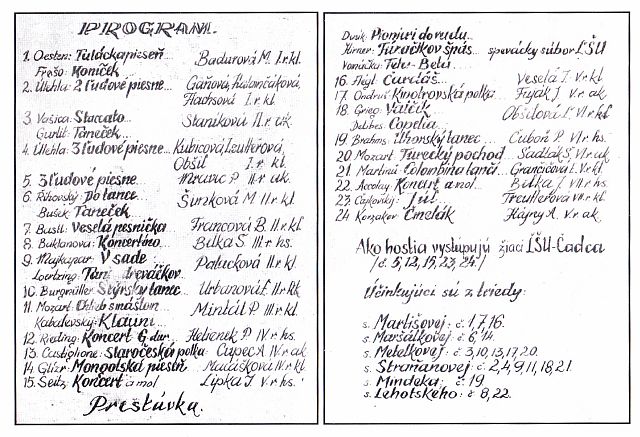 PROGRAM.
1. Oesten: Tulácka pieseň... Badurová M. I.r.kl.
Frešo: Koníček
2. Úlehla: 2 ľudové piesne... Gáňová,
Flachsová I. r. kl.
3 Vašica: Staccato... Staníková II.r. ak
Gurlit: Taneček...
4. Úlehla: 3 ľudové piesne... Kubicová,
Obšil I. r. kl
5. 3 ľudové piesne... Mravic P. II.r ak
6. Říhovský: Do tanca... M II.r kl
Bušek: Taneček
7. Bastl: Veselá pesnička Francová B. II.r.kl
8. Baklanova: Koncertíno... Belka Š III.r. hs.
9. Majkapar: V sade Palucková II.r kl.
Loertzing: Tanec drevačkov
10. Burgmüller Štýrsky tanec... Urbanová
11. Mozart: Chlieb s maslom... Mintál P. III.r kl.
Kabalevský: Klauni...
12. Rieding: Koncert G dur... Helienek P IV r hs.
13. Castiglione: Staročeská polka. Cupec A IV r. ak
14. Gliér: Mongolská pieseň... Matášková IV.r kl.
15. Seitz: Koncert a mol Lipka J V.r hs.
Prestávka.
Dusík: Pionieri do radu...
Hirner: Turačkov špás... spevácky súbor ĽŠU
Vomáčka: Tele-Belé...
16. Čardáš... Veselá J. V.r kl.
17. Ondruš: Kinotrovská polka... Fijak J V.r. ak
18. Grieg: Valčík... Obšilová Ľ. VI.r kl
Delibes: Copelia...
19. Brahms: Uhorský tanec... Cuboň P. VI.r hs.
20 Mozart Turecký pochod... Sadlák Š. VI.r ak
21 Martinů: Colombína tančí... Grančičová L V.r kl.
22. Accolay Koncert a mol... Bitka J VII r hs.
23. Čajkovskij: Júl Treutlerová VII r kl.
24 Korzakov Čmelák Hájny A. V.r ak
Ako hostia vystupujú žiaci ĽŠU-Čadca
/č. 5, 12, 15, 23, 24./
Účinkujúci sú z triedy:
s. Martišovej: č. 1, 7, 16.
s. Maršálkovej: č. 6, 14.
s. Metelkovej: č. 3, 10, 13, 17, 20.
s. Straňanovej: č. 2, 4, 9, 11, 18, 21.
s. Mindeka: č. 19
s. Lehotského: č. 8, 22.